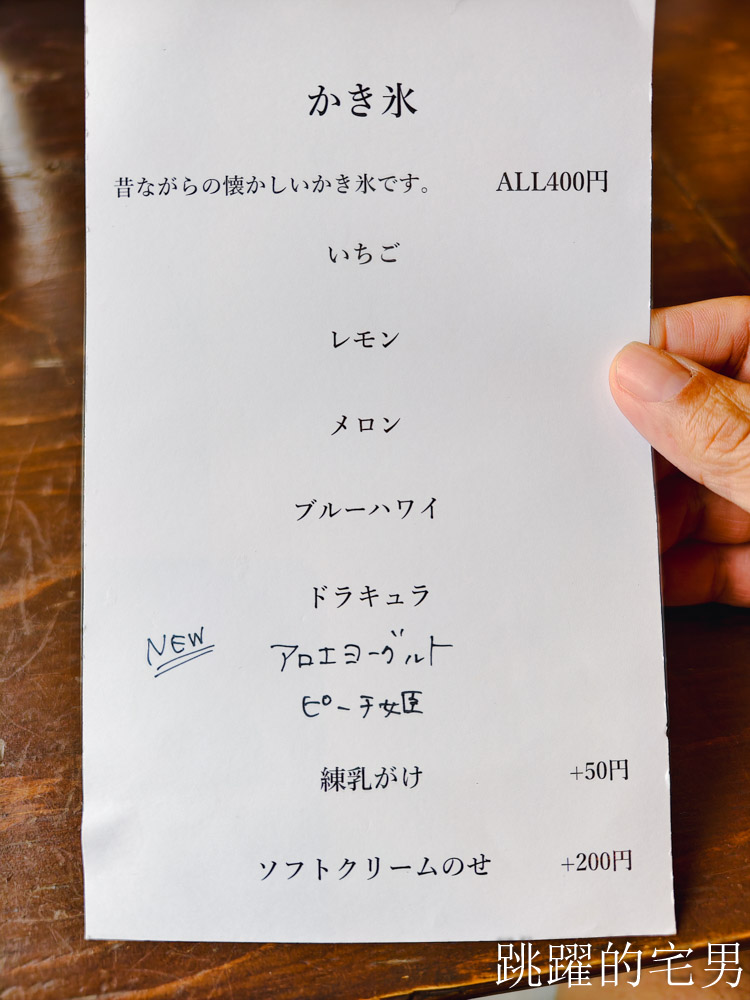 かき氷
昔ながらの懐かしいかき氷です。 ALL400円
いちご
レモン
メロン
ブルーハワイ
ドラキュラ
NEW アロエヨーグルト
ピーチ姫
練乳がけ +50円
ソフトクリームのせ +200円
跳躍的宅男